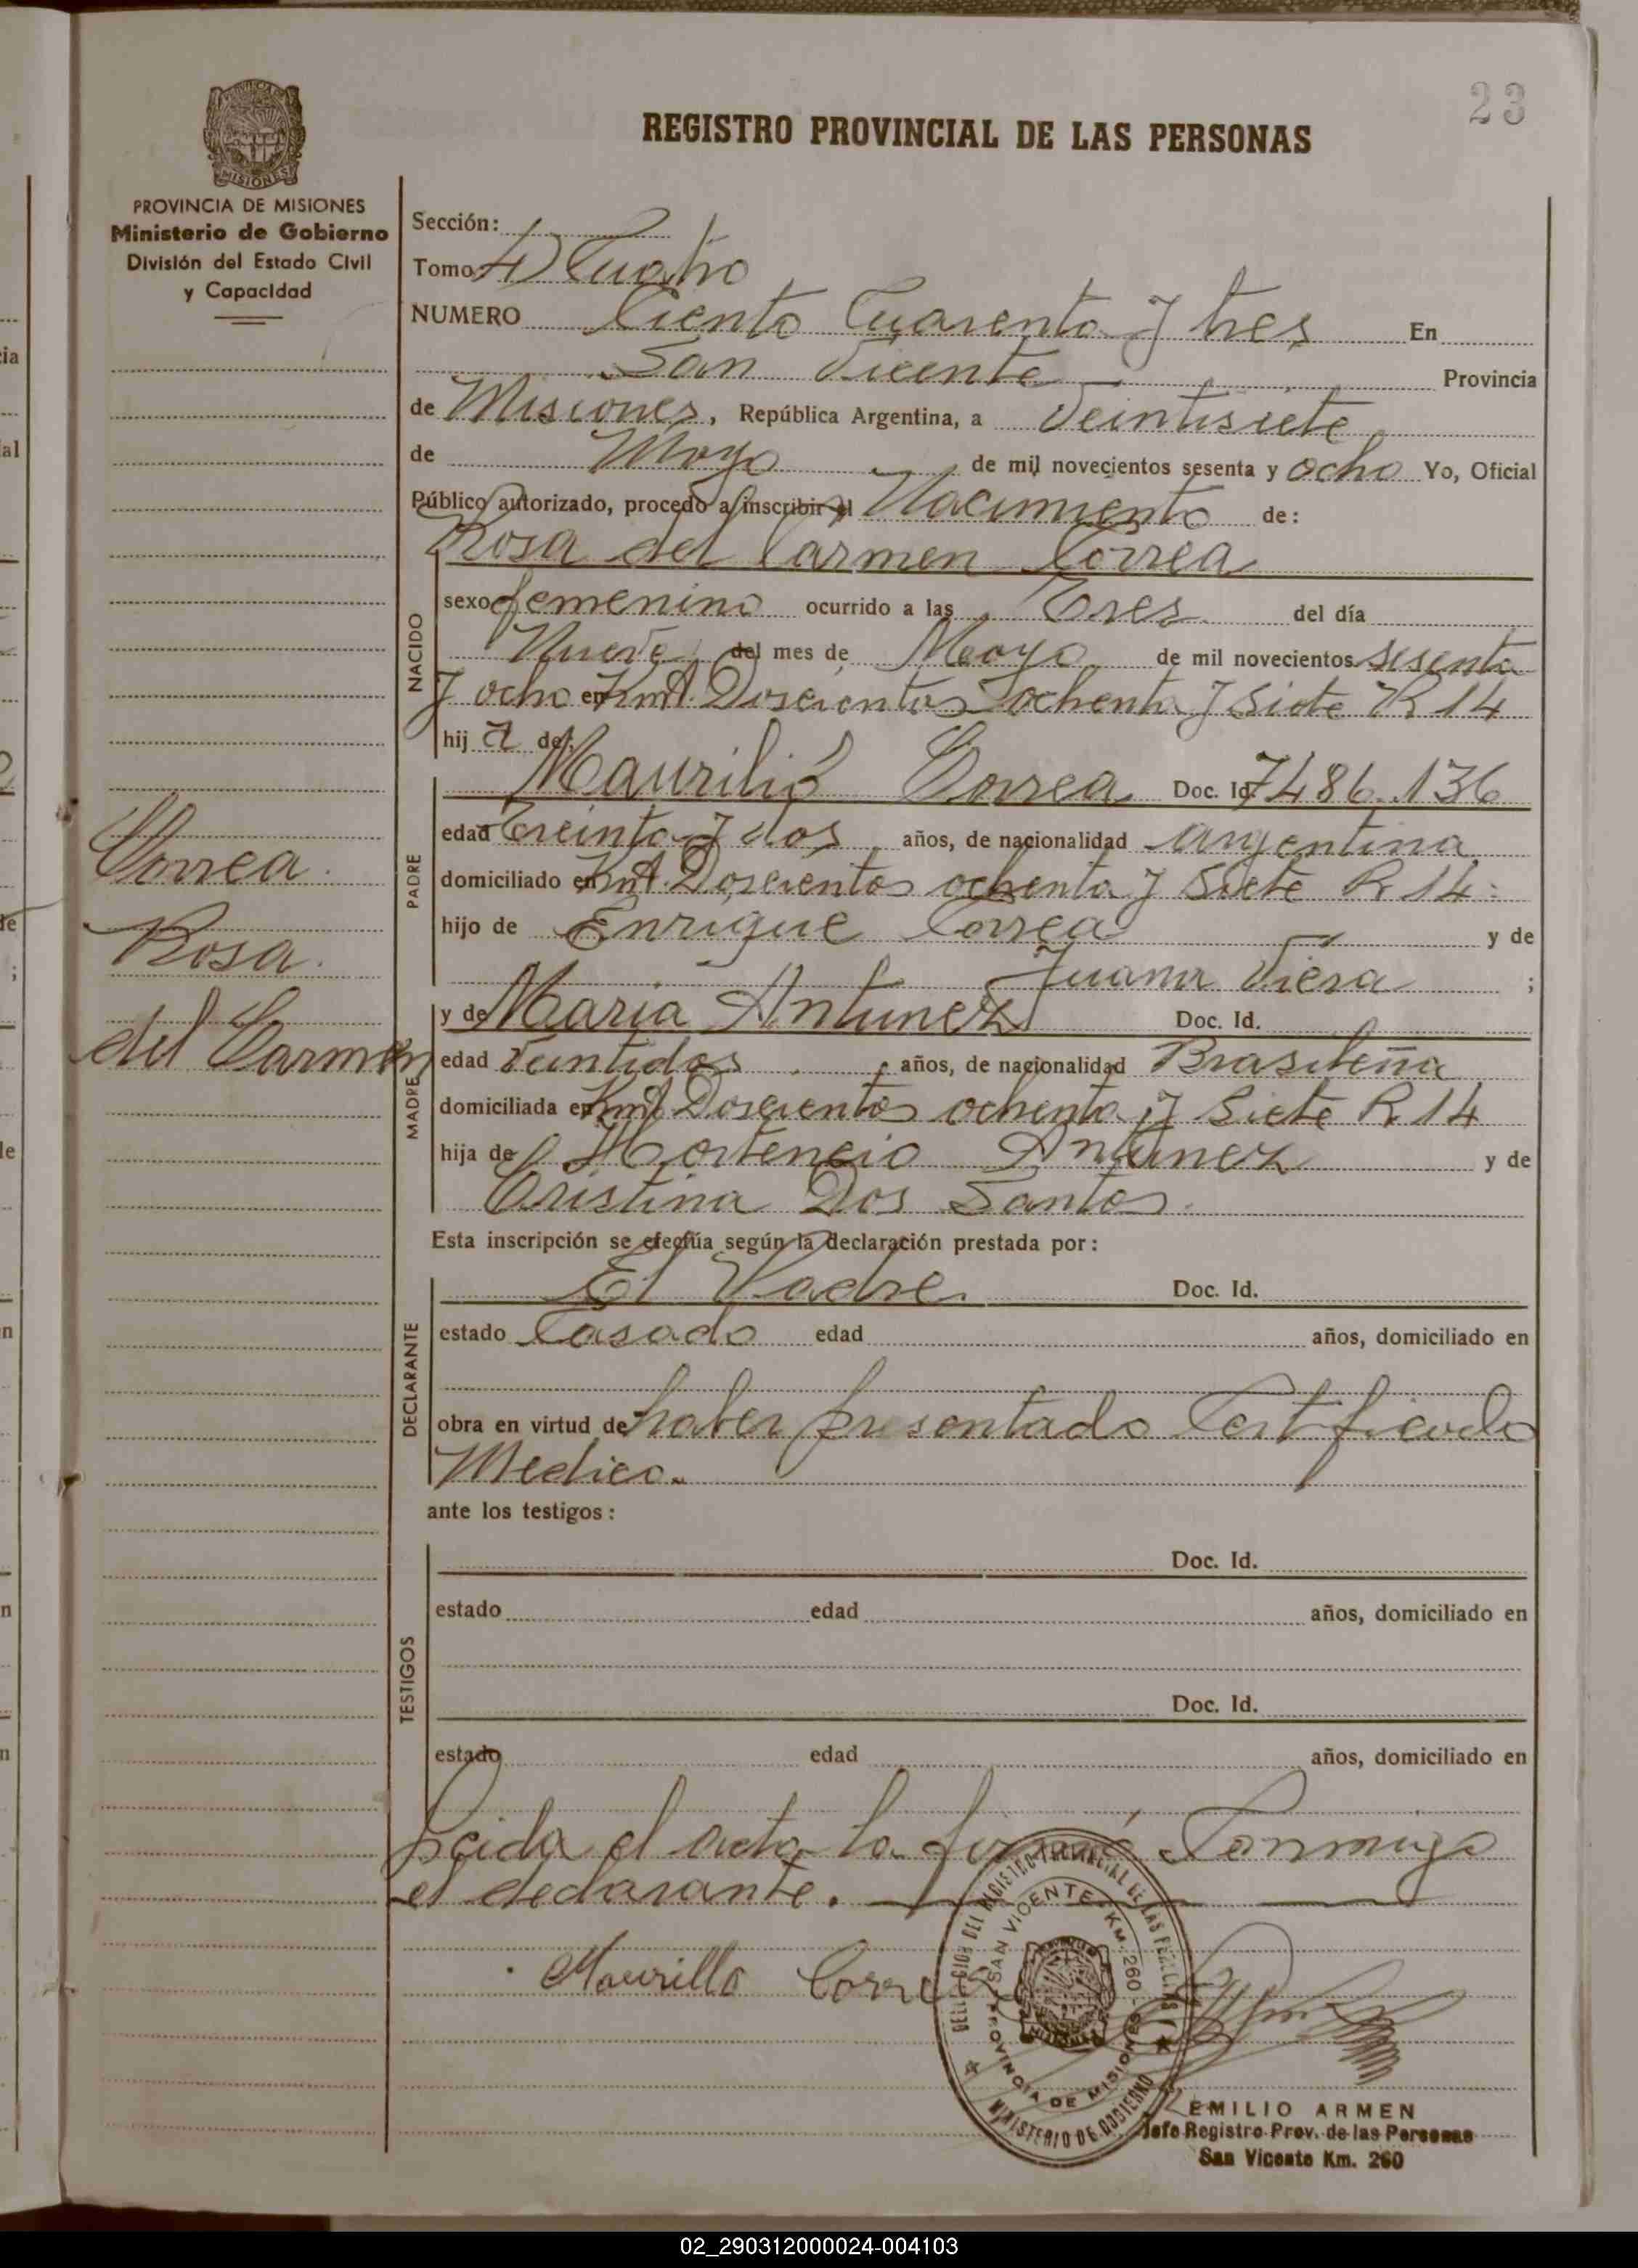 23
REGISTRO PROVINCIAL DE LAS PERSONAS
MISIONES
PROVINCIA DE MISIONES
Ministerio de Gobierno
División del Estado Civil
y Capacidad
Sección:
Tomo 4) Cuatro
NUMERO Ciento Cuarenta y tres En
San Vicente Provincia
de Misiones, República Argentina, a Veintisiete
de Mayo de mil novecientos sesenta y ocho Yo, Oficial
Público autorizado, procedo a inscribir el Nacimiento de:
Rosa del Carmen Correa
NACIDO
sexo femenino ocurrido a las Tres del día
Nueve del mes de Mayo de mil novecientos sesenta
y ocho en Kmt. Doscientos ochenta y Siete R 14
hij a de:
Maurilio Correa Doc. Id. 7486.136
PADRE
edad Treinta y dos años, de nacionalidad argentina
domiciliado en Kmt. Doscientos ochenta y Siete R 14
hijo de Enrique Correa y de
Juana Viera ;
y de Maria Antunez Doc. Id.
MADRE
edad Veintidos años, de nacionalidad Brasileña
domiciliada en Kmt Doscientos ochenta y Siete R 14
hija de Hortencio Antunez y de
Cristina Dos Santos.
Correa
Rosa
del Carmen
Esta inscripción se efectúa según la declaración prestada por:
DECLARANTE
El Padre. Doc. Id.
estado Casado edad años, domiciliado en
obra en virtud de haber presentado Certificado
Medico.
ante los testigos:
TESTIGOS
Doc. Id.
estado edad años, domiciliado en
Doc. Id.
estado edad años, domiciliado en
Leida el acta la firmó Conmigo
el declarante.
Maurillo Correa
SAN VICENTE KM. 260
PROVINCIA DE MISIONES
MINISTERIO DE GOBIERNO
EMILIO ARMEN
Jefe Registro Prov. de las Personas
San Vicente Km. 260
02_290312000024-004103